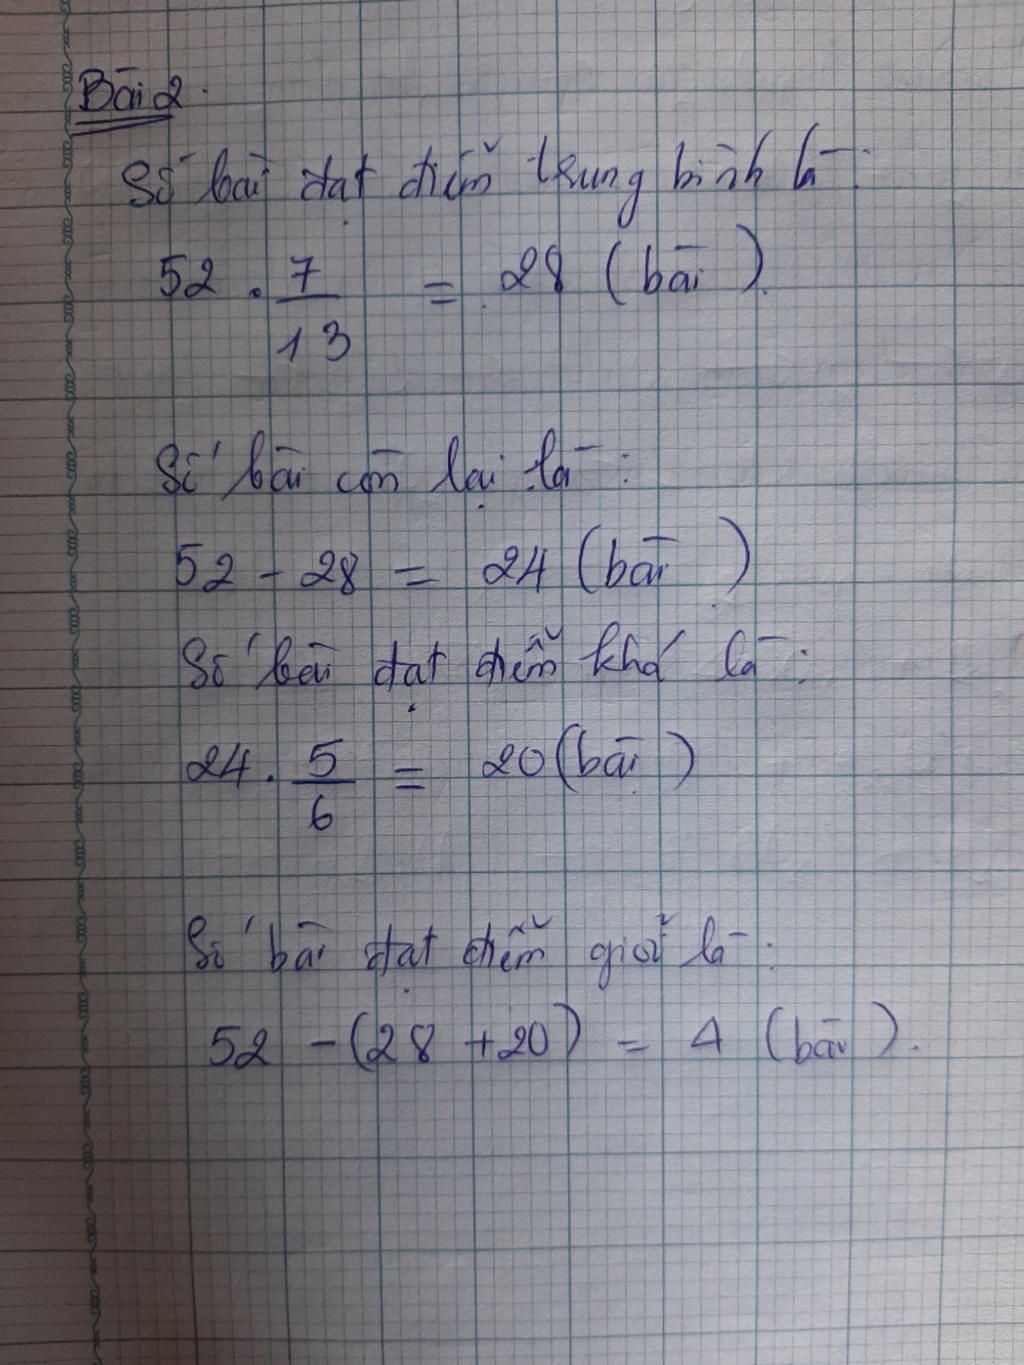 Bài 2.
Số bài đạt điểm trung bình là:
52 . 7/13 = 28 (bài).
Số bài còn lại là:
52 - 28 = 24 (bài)
Số bài đạt điểm khá là:
24 . 5/6 = 20 (bài)
Số bài đạt điểm giỏi là:
52 - (28 + 20) = 4 (bài).